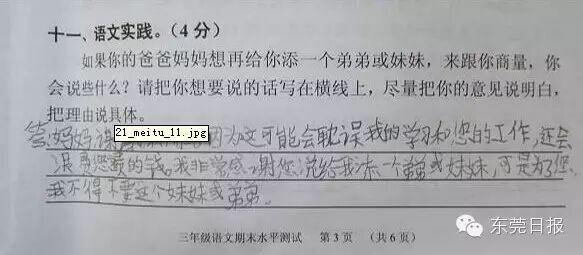 十一、语文实践。(4分)
如果你的爸爸妈妈想再给你添一个弟弟或妹妹，来跟你商量，你
会说些什么？请把你想要说的话写在横线上，尽量把你的意见说明白，
把理由说具体。
答:妈妈谢因为这可能会耽误我的学习和您的工作,还会
浪费您的钱,我非常感谢您说给我添一个弟弟或妹妹,可是为了您
我不得不要这个妹妹或弟弟。
21_meitu_11.jpg
三年级语文期末水平测试 第3页 (共6页)
东莞日报